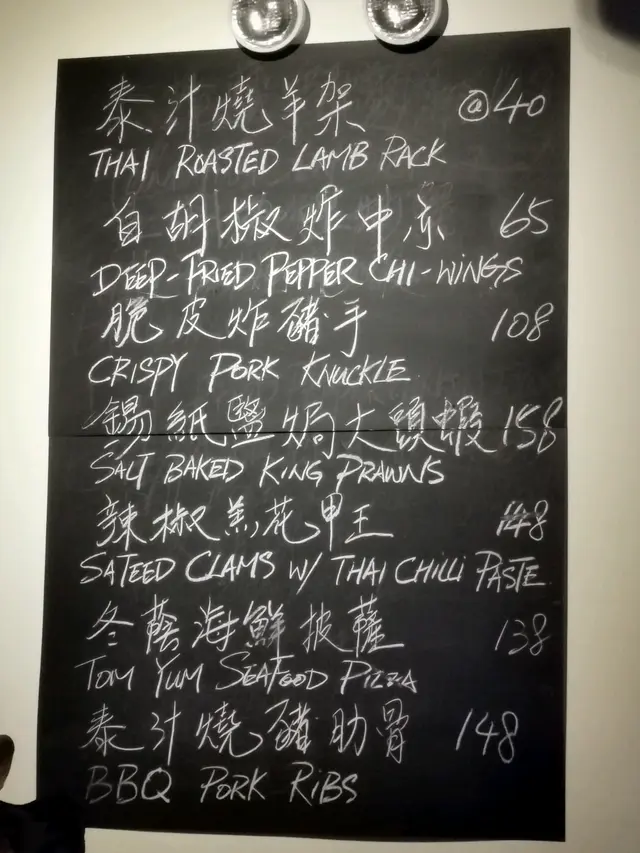 泰汁燒羊架 @40
THAI ROASTED LAMB RACK
白胡椒炸中亦 65
DEEP-FRIED PEPPER CHI-WINGS
脆皮炸豬手 108
CRISPY PORK KNUCKLE
錫紙鹽焗大頭蝦 158
SALT BAKED KING PRAWNS
辣椒羔花甲王 148
SATEED CLAMS W/ THAI CHILLI PASTE
冬蔭海鮮披薩 138
TOM YUM SEAFOOD PIZZA
泰汁燒豬肋骨 148
BBQ PORK RIBS